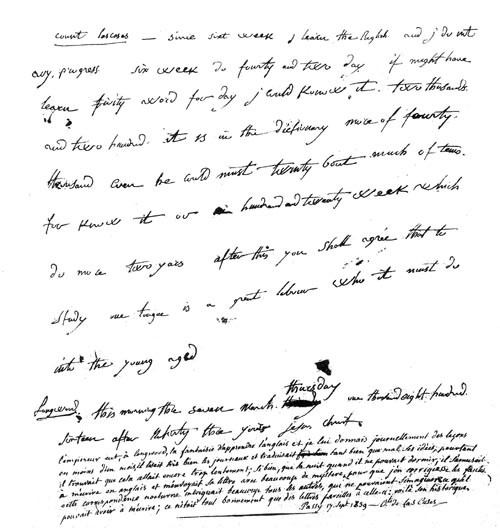 count lascases — since sixt week j learn the English and j do not
any progress six week do fourty and two day if might have
learn fivity word for day j could know it two thousands
and two hundred. it is in the dictionary more of fourty
thousand even he could must twenty bout much of tems.
for know it or hundred and twenty week which
do more two yars after this you shall agree that to
study one tongue is a great labour who it must do
into the young aged
Longwood, this morning the seven march thursday one thousand eight hundred.
sixteen after nativity the yors jesus christ.
l'empereur eut, à longwood, la fantaisie d'apprendre l'anglais et je lui donnais journellement des leçons
en moins d'un mois il lisait très bien les journaux et traduisait tant bien que mal ses idées, pourtant
il trouvait que cela allait encore trop lentement; si bien, que la nuit quand il ne pouvait dormir, il s'amusait
à m'écrire en anglais et m'envoyait sa lettre avec beaucoup de mystère, pour que j'en corrigeasse les fautes.
cette correspondance nocturne intriguait beaucoup tous les autres, qui ne pouvaient s'imaginer ce qu'il
pouvait avoir à m'écrire; ce n'était tout bonnement que des lettres pareilles à celle-ci; voilà son historique.
Passy 17 sept 1839 — Cte de Las Cases